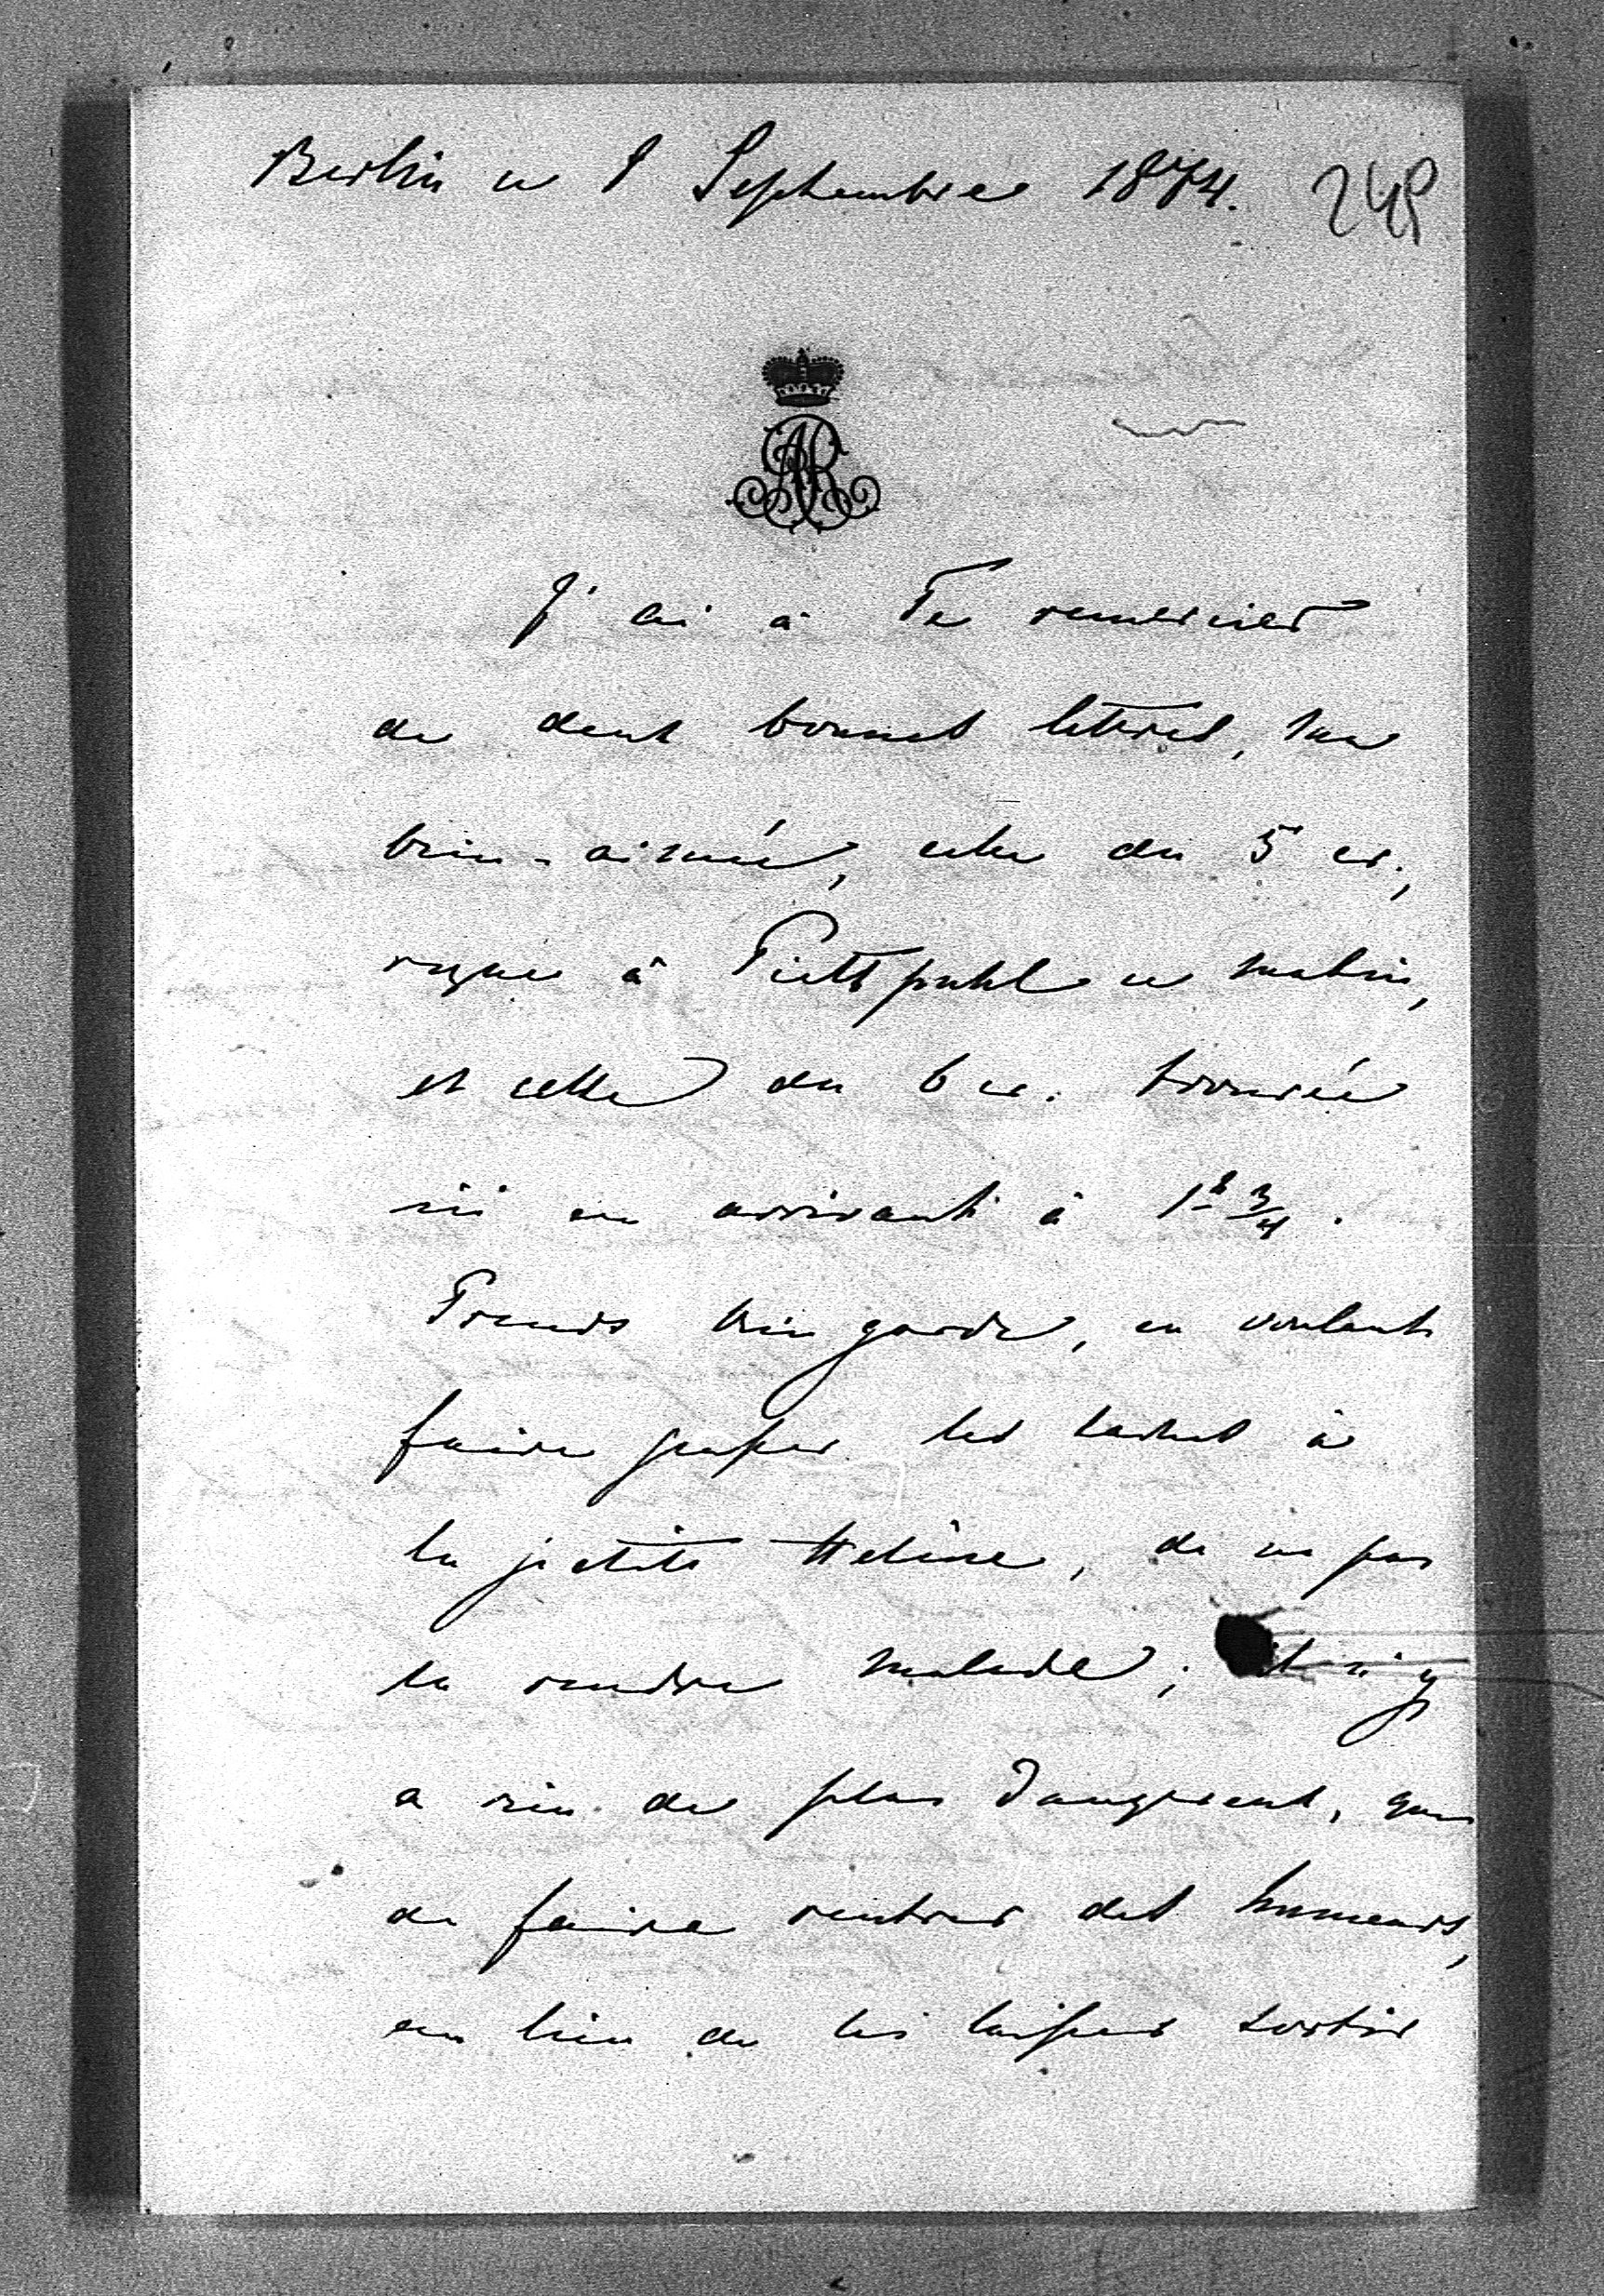 Berlin ce 8 Septembre 1874. 249
AR
J'ai à Te remercier
de deux bonnes lettres, ma
bien-aimée, celle du 5 cr.,
reçue à Pietzpuhl ce matin,
et celle du 6 cr. trouvée
ici en arrivant à 1 3/4.
Prends bien garde, en voulant
faire passer les taches à
la petite Hélène, de ne pas
la rendre malade; il n'y
a rien de plus dangereux, que
de faire rentrer des humeurs,
au lieu de les laisser sortir